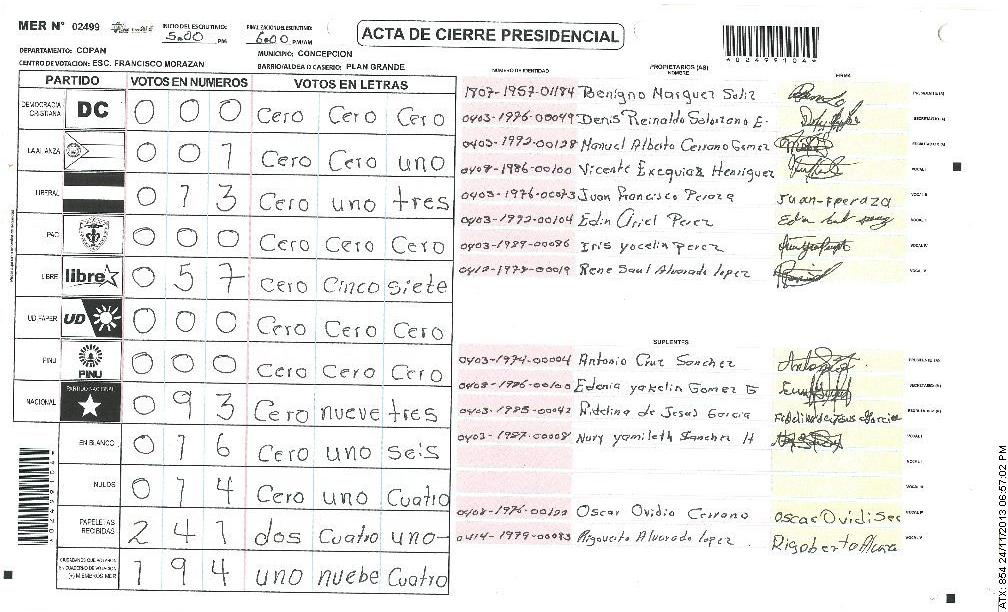 MER N° 02499 INICIO DEL ESCRUTINIO: 5:00 PM FINALIZACION DEL ESCRUTINIO: 6:00 PM/AM ACTA DE CIERRE PRESIDENCIAL
*02499104*
DEPARTAMENTO: COPAN MUNICIPIO: CONCEPCION
CENTRO DE VOTACION: ESC. FRANCISCO MORAZAN BARRIO/ALDEA O CASERIO: PLAN GRANDE
NUMERO DE IDENTIDAD PROPIETARIOS (AS) NOMBRE FIRMA
PARTIDO VOTOS EN NUMEROS VOTOS EN LETRAS
DEMOCRACIA CRISTIANA DC 0 0 0 Cero Cero Cero
LA ALIANZA 0 0 1 Cero Cero uno
LIBERAL 0 1 3 Cero uno tres
PAC 0 0 0 Cero Cero Cero
LIBRE libre 0 5 7 Cero Cinco siete
UD FAPER UD 0 0 0 Cero Cero Cero
PINU PINU 0 0 0 Cero Cero Cero
NACIONAL PARTIDO NACIONAL 0 9 3 Cero nueve tres
EN BLANCO 0 1 6 Cero uno seis
NULOS 0 1 4 Cero uno Cuatro
PAPELETAS RECIBIDAS 2 4 1 dos Cuatro uno-
CIUDADANOS QUE VOTARON EN CUADERNO DE VOTACION (+) MIEMBROS MER 1 9 4 uno nuebe Cuatro
1807-1957-01184 Benigno Marquez Soliz PRESIDENTE (A)
0403-1976-00049 Denis Reinaldo Solorzano E. SECRETARIO (A)
0403-1992-00128 Manuel Alberto Cerrano Gomez
0408-1986-00100 Vicente Exequias Henriquez VOCAL I
0403-1976-00073 Juan Francisco Peraza Juan F peraza VOCAL II
0403-1972-00104 Edin Ariel Perez
0403-1989-00086 Iris yocelin Perez VOCAL IV
0412-1978-00019 Rene Saul Alvarado lopez VOCAL V
SUPLENTES
0403-1974-00004 Antonio Cruz Sanchez PRESIDENTE (A)
0408-1986-00100 Edenia yakelin Gomez G SECRETARIO (A)
0403-1985-00042 Fidelina de Jesus Garcia Fidelina de Jesus Garcia
0403-1987-00008 Nury yamileth Sanchez H VOCAL I
VOCAL II
VOCAL III
Oscar Ovidio Cerrano VOCAL IV
0414-1979-00083 Rigoverto Alvarado lopez. VOCAL V
*02499104*
ATX: 854 24/11/2013 06:57:02 PM